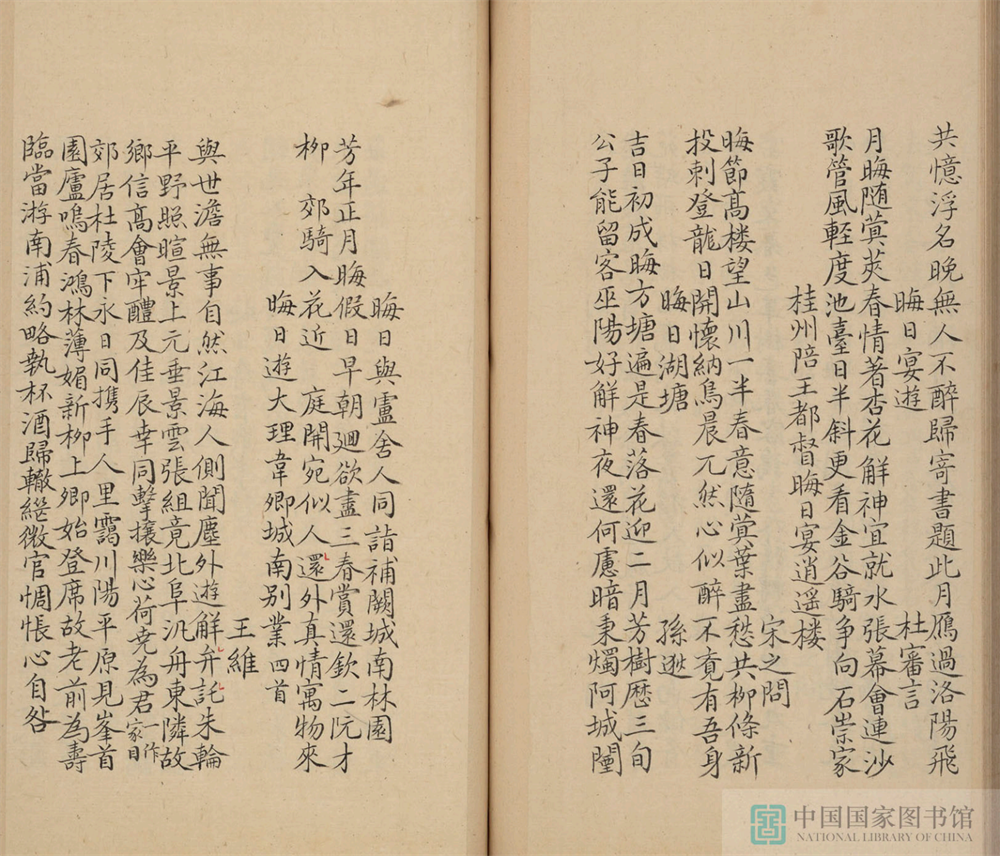 共憶浮名晚無人不醉歸寄書題此月鴈過洛陽飛
晦日宴遊　杜審言
月晦隨蓂莢春情著杏花解神宜就水張幕會連沙
歌管風輕度池臺日半斜更看金谷騎争向石崇家
桂州陪王都督晦日宴逍遥楼
宋之問
晦節高楼望山川一半春意隨蓂葉盡愁共柳條新
投刺登龍日開懷納鳥晨兀然心似醉不竟有吾身
晦日湖塘　孫逖
吉日初成晦方塘遍是春落花迎二月芳樹歷三旬
公子能留客巫陽好解神夜還何慮暗秉燭阿城闉
晦日與盧舍人同詣補闕城南林園
芳年正月晦假日早朝廻欲盡三春賞還欽二阮才
柳　郊騎入花近　庭開宛似人還外真情寓物來
晦日遊大理韋卿城南别業四首
王維
與世澹無事自然江海人側聞塵外遊解弁託朱輪
平野照暄景上元垂景雲張組竟北阜汎舟東隣故
鄉信高會牢醴及佳辰幸同擊攘樂心荷尭為君一作家日
郊居杜陵下永日同携手人里靄川陽平原見峯首
園廬鳴春鴻林薄媚新柳上卿始登席故老前為壽
臨當游南浦約略執杯酒歸轍絕微官惆悵心自咎
中国国家图书馆
NATIONAL LIBRARY OF CHINA